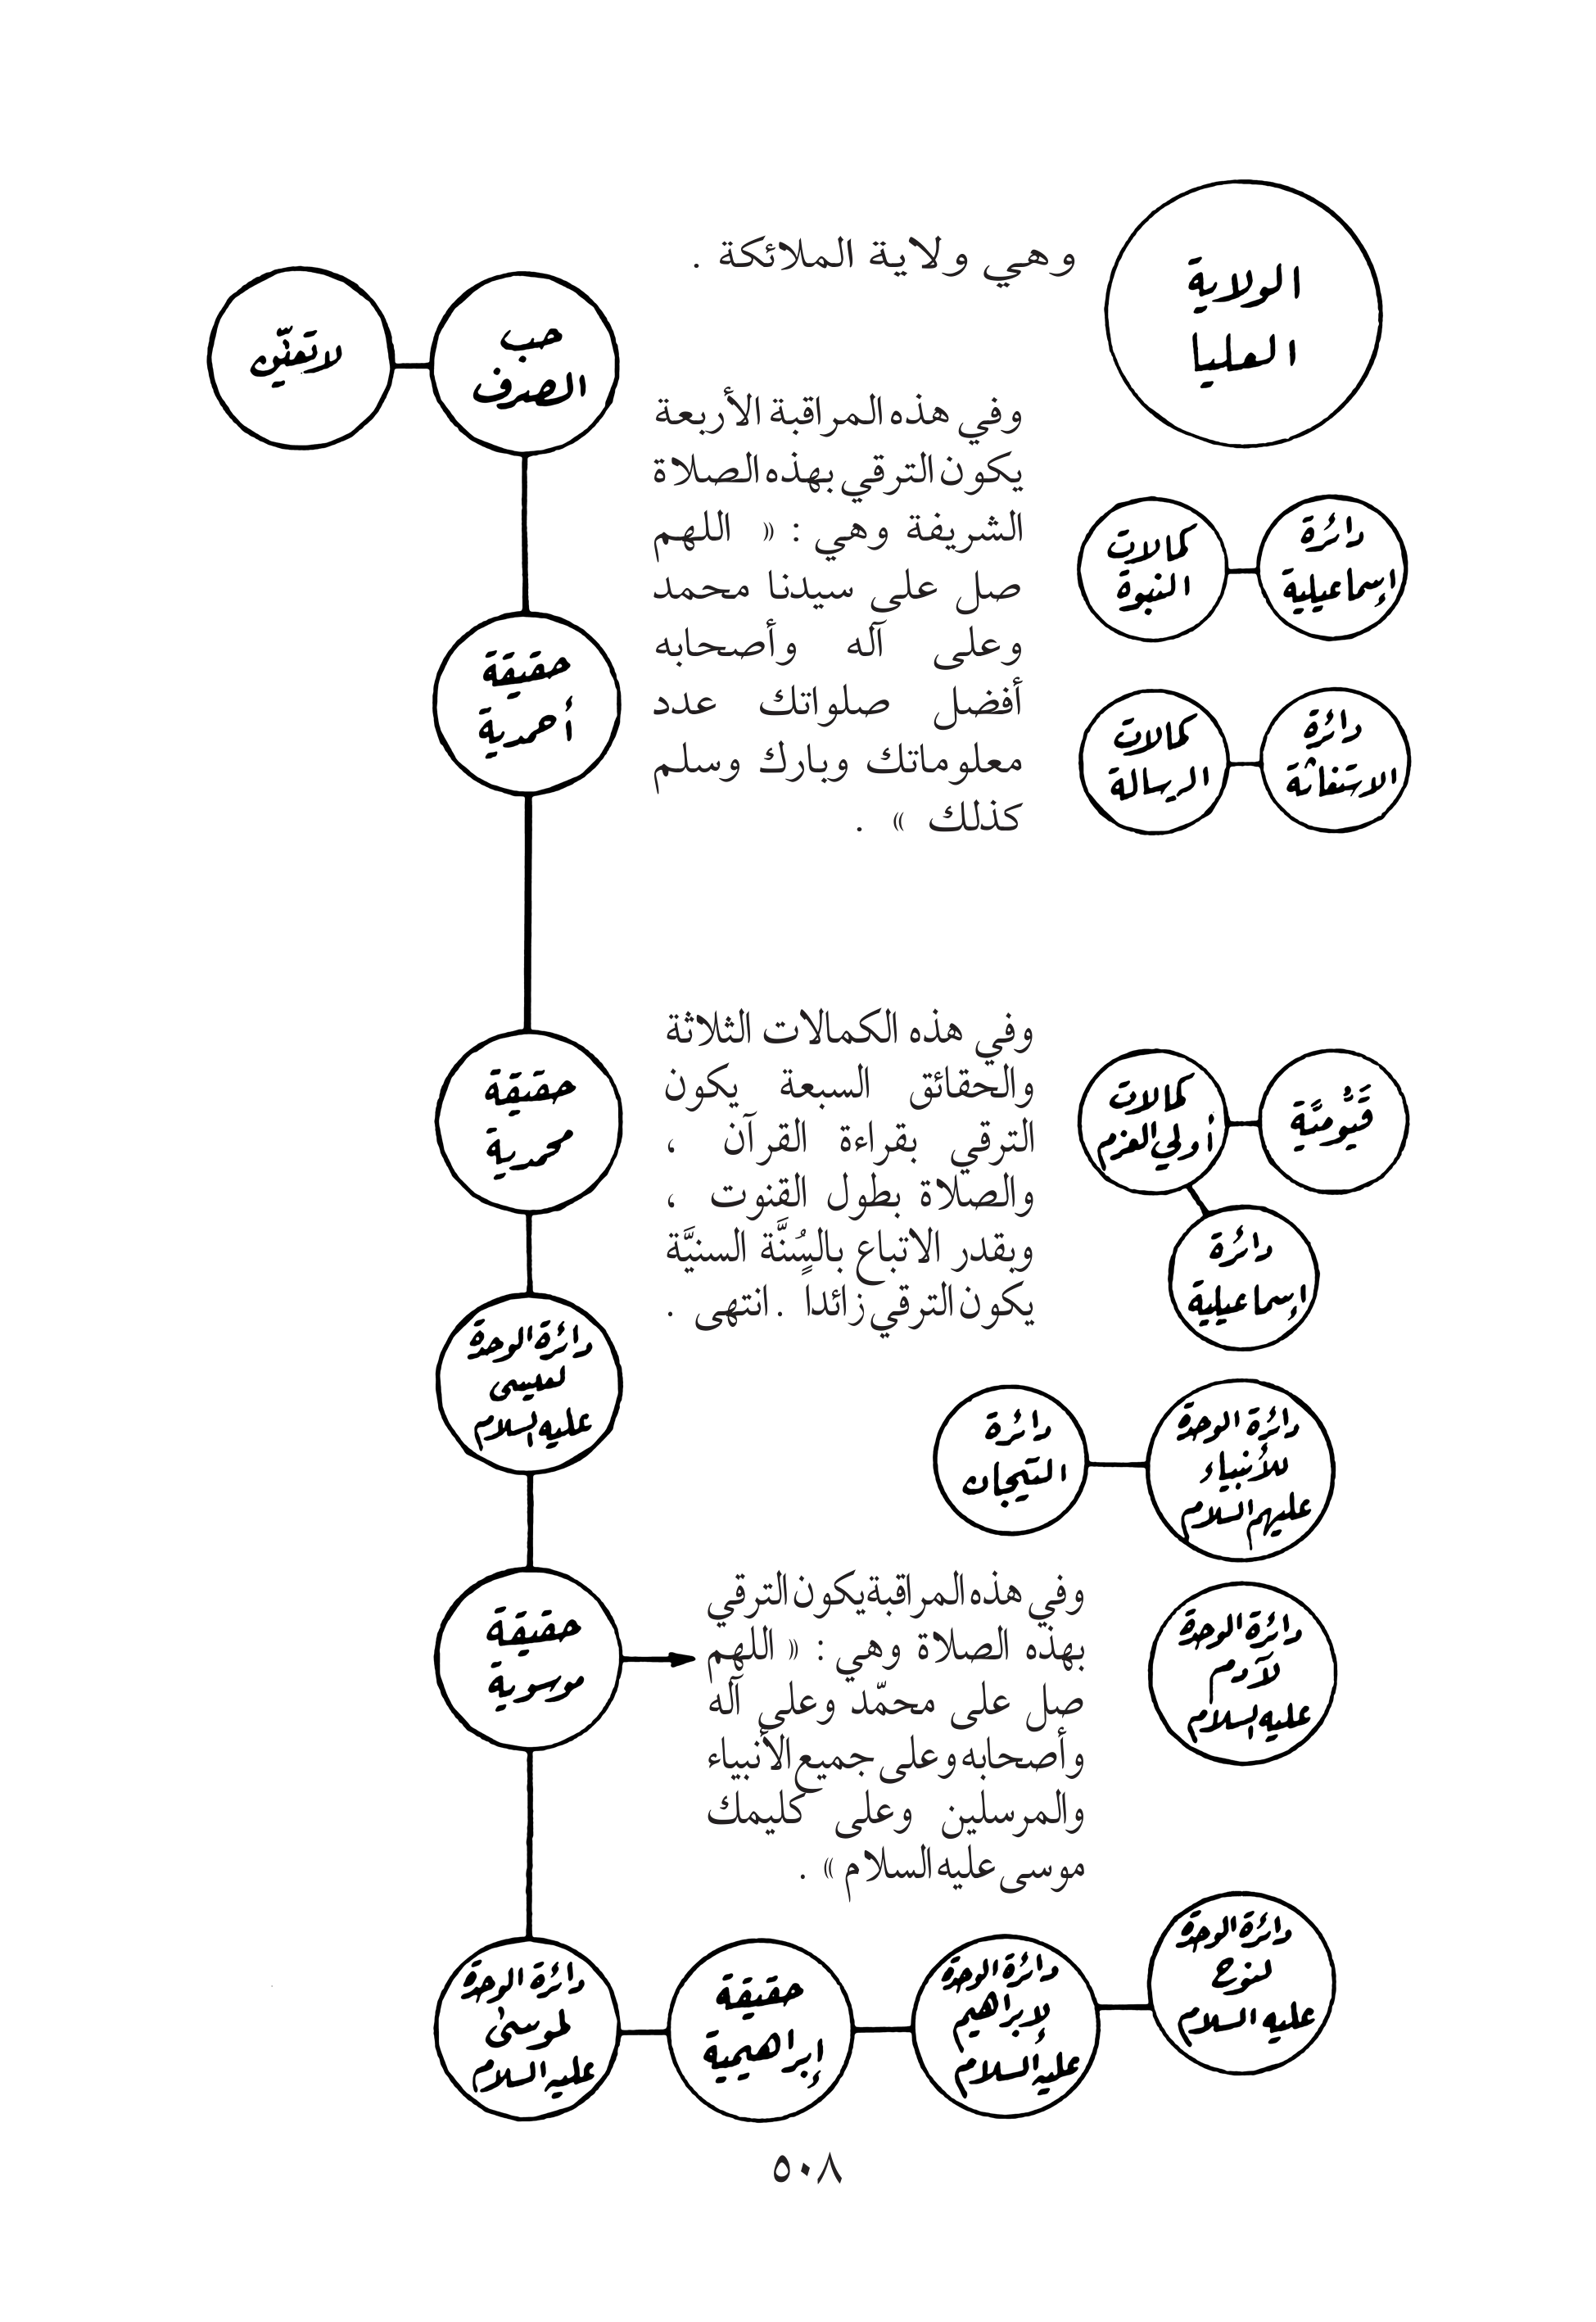 الولاية
العليا
وهي ولاية الملائكة .
حب
الصرف
لا تعيّن
وفي هذه المراقبة الأربعة
يكون الترقي بهذه الصلاة
الشريفة وهي : « اللهم
صل على سيدنا محمد
وعلى آله وأصحابه
أفضل صلواتك عدد
معلوماتك وبارك وسلم
كذلك » .
دائرة
إسماعيلية
كمالات
النبوة
دائرة
الاستغاثة
كمالات
الرسالة
حقيقة
أحمدية
وفي هذه الكمالات الثلاثة
والحقائق السبعة يكون
الترقي بقراءة القرآن ،
والصلاة بطول القنوت ،
وبقدر الاتباع بالسُنَّة السنيَّة
يكون الترقي زائداً . انتهى .
قَيُّوميَّة
كمالات
أولي العزم
دائرة
إسماعيلية
حقيقة
محمدية
دائرة الوحدة
لعيسى
عليه السلام
دائرة الوحدة
للأنبياء
عليهم السلام
دائرة
التيجان
دائرة الوحدة
لآدم
عليه السلام
وفي هذه المراقبة يكون الترقي
بهذه الصلاة وهي : « اللهم
صل على محمّد وعلى آله
وأصحابه وعلى جميع الأنبياء
والمرسلين وعلى كليمك
موسى عليه السلام » .
حقيقة
موسوية
دائرة الوحدة
لنوح
عليه السلام
دائرة الوحدة
لإبراهيم
عليه السلام
حقيقة
إبراهيمية
دائرة الوحدة
لموسى
عليه السلام
٥٠٨